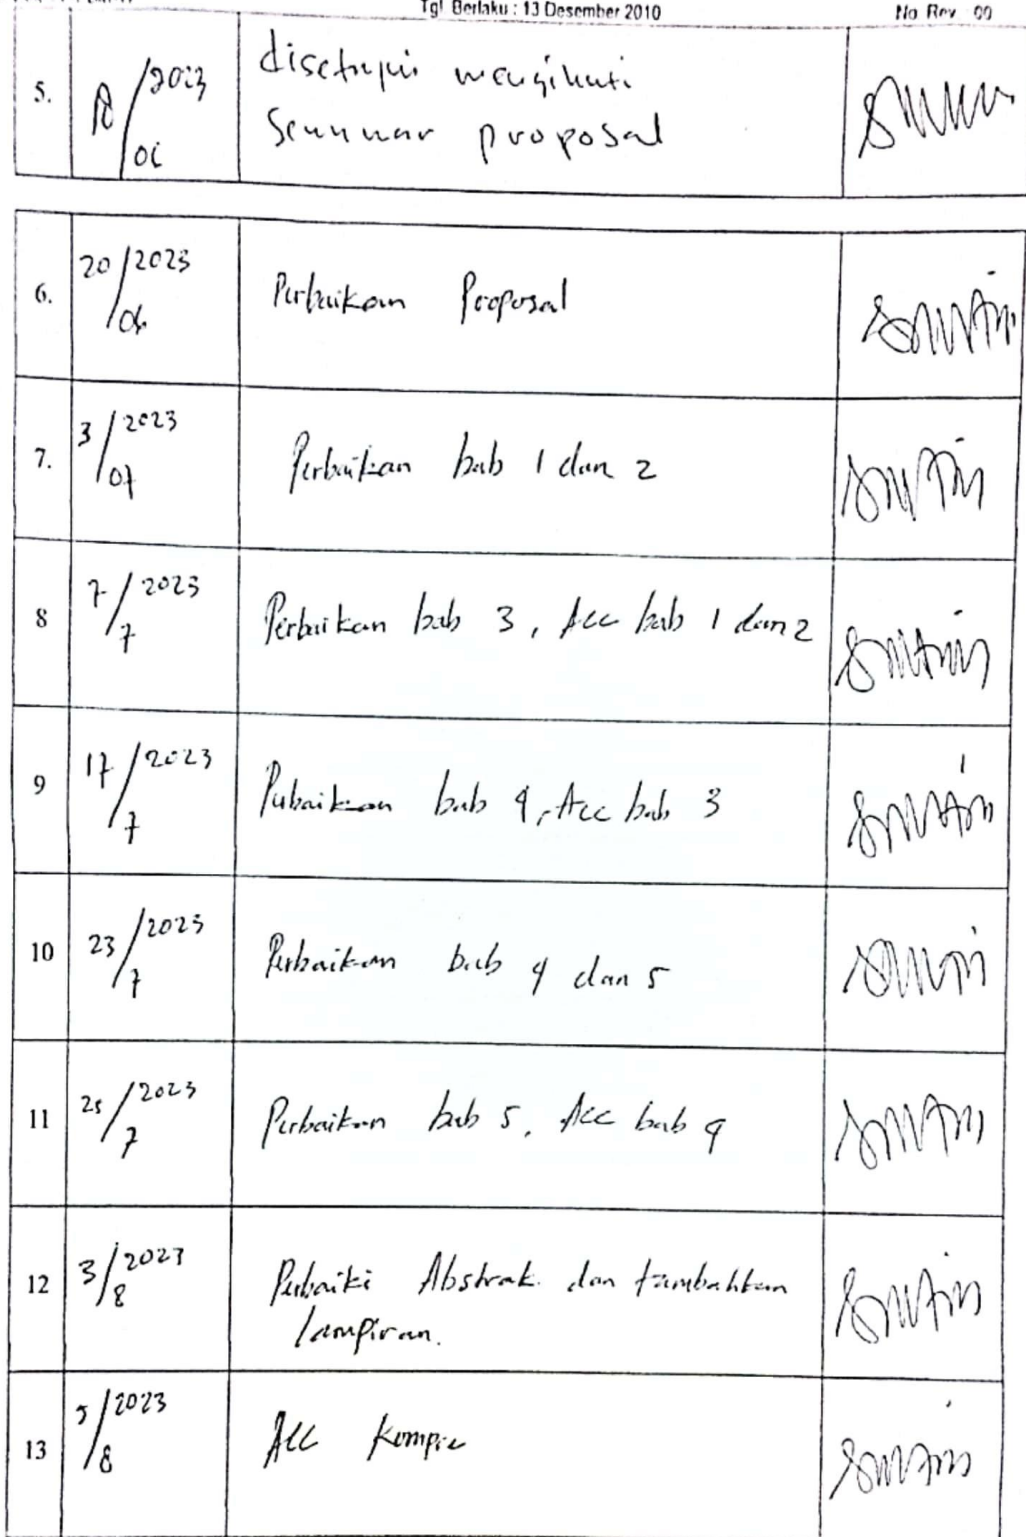 Tgl Berlaku : 13 Desember 2010 No Rev 00
5. /2023 disetujui mengikuti
06 Seminar proposal
6. 20/2023 Perbaikan Proposal
06
7. 3/2023 Perbaikan bab 1 dan 2
07
8 7/2023 Perbaikan bab 3, Acc bab 1 dan 2
7
9 17/2023 Perbaikan bab 4, Acc bab 3
7
10 23/2023 Perbaikan bab 4 dan 5
7
11 25/2023 Perbaikan bab 5, Acc bab 4
7
12 3/2023 Perbaiki Abstrak dan tambahkan
8 lampiran.
13 5/2023 Acc Kompre
8